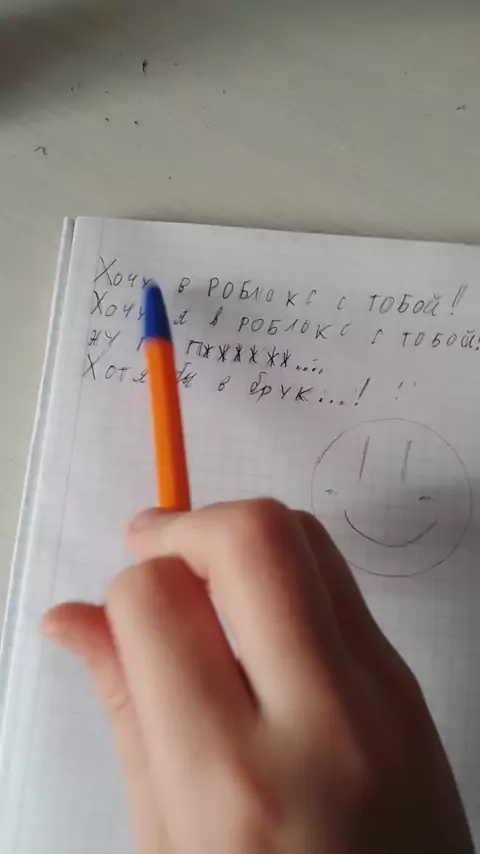 Хочу в РОБЛОКС с ТОБОЙ!!
Хочу я в РОБЛОКС с ТОБОЙ!
НУ ПЖЖЖЖЖЖ.....
Хотя бы в брук...! !!